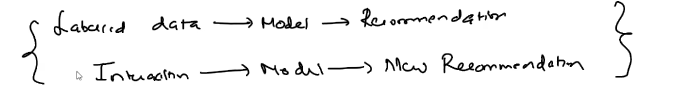 { Labelled data → Model → Recommendation }
Interaction → Model → New Recommendation